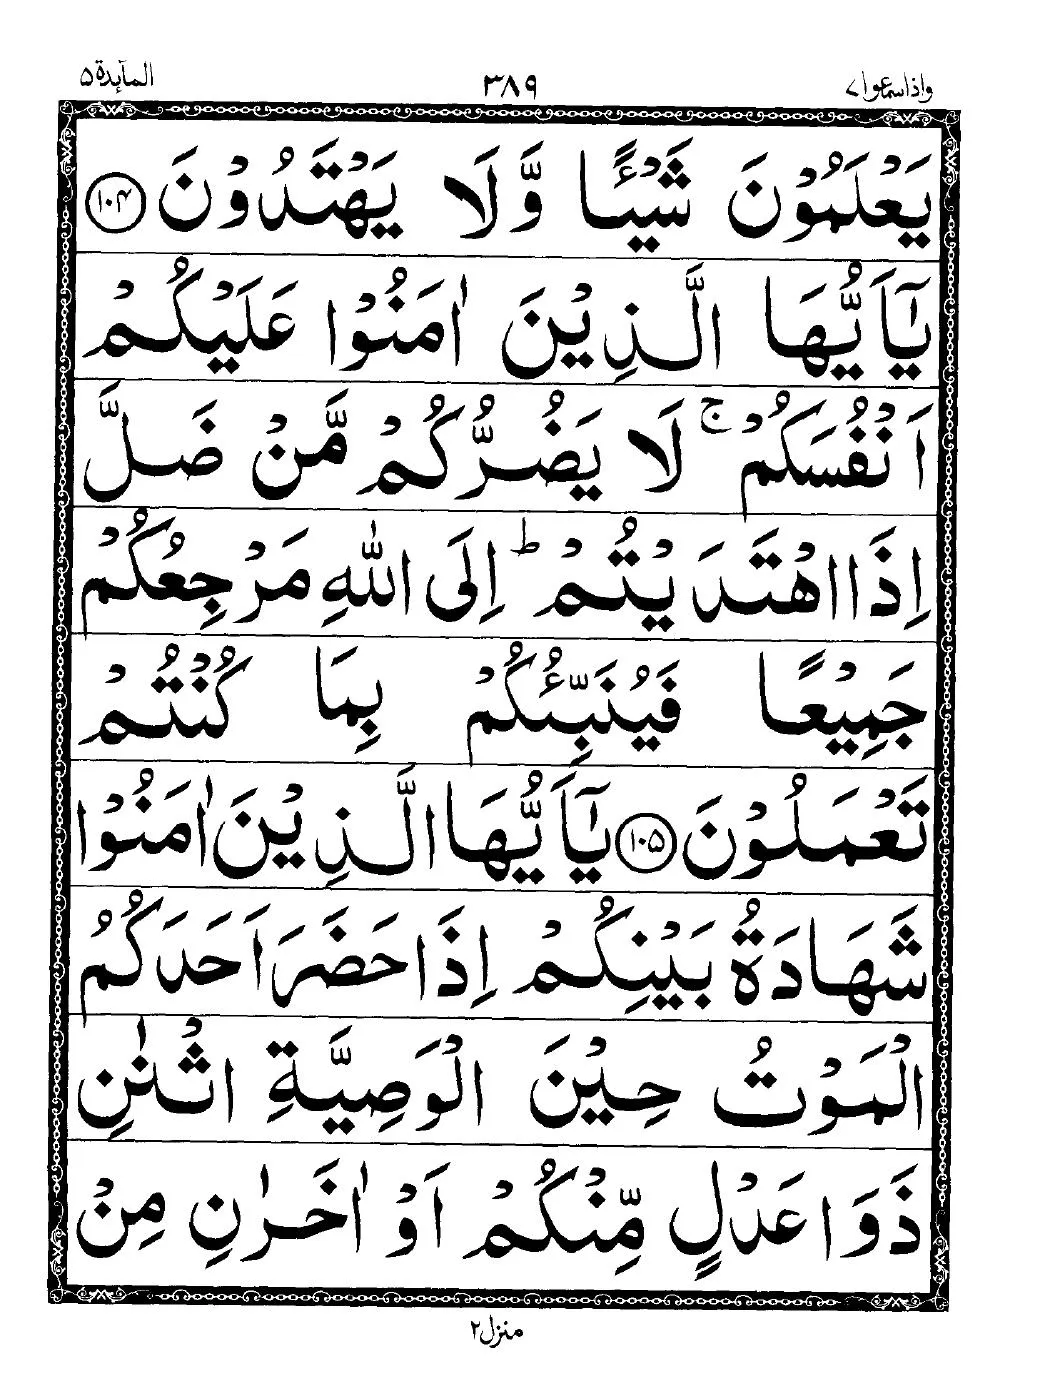 واذاسمعوا ٧ ٣٨٩ المآىِٕدة ۵
يَعْلَمُوْنَ شَيْـًٔـا وَّلَا يَهْتَدُوْنَ ١٠۴
يٰۤاَيُّهَا الَّذِيْنَ اٰمَنُوْا عَلَيْكُمْ
اَنْفُسَكُمْ ۚ لَا يَضُرُّكُمْ مَّنْ ضَلَّ
اِذَا اهْتَدَيْتُمْ ؕ اِلَى اللّٰهِ مَرْجِعُكُمْ
جَمِيْعًا فَيُنَبِّئُكُمْ بِمَا كُنْتُمْ
تَعْمَلُوْنَ ١٠۵ يٰۤاَيُّهَا الَّذِيْنَ اٰمَنُوْا
شَهَادَةُ بَيْنِكُمْ اِذَا حَضَرَ اَحَدَكُمُ
الْمَوْتُ حِيْنَ الْوَصِيَّةِ اثْنٰنِ
ذَوَا عَدْلٍ مِّنْكُمْ اَوْ اٰخَرٰنِ مِنْ
منزل ٢